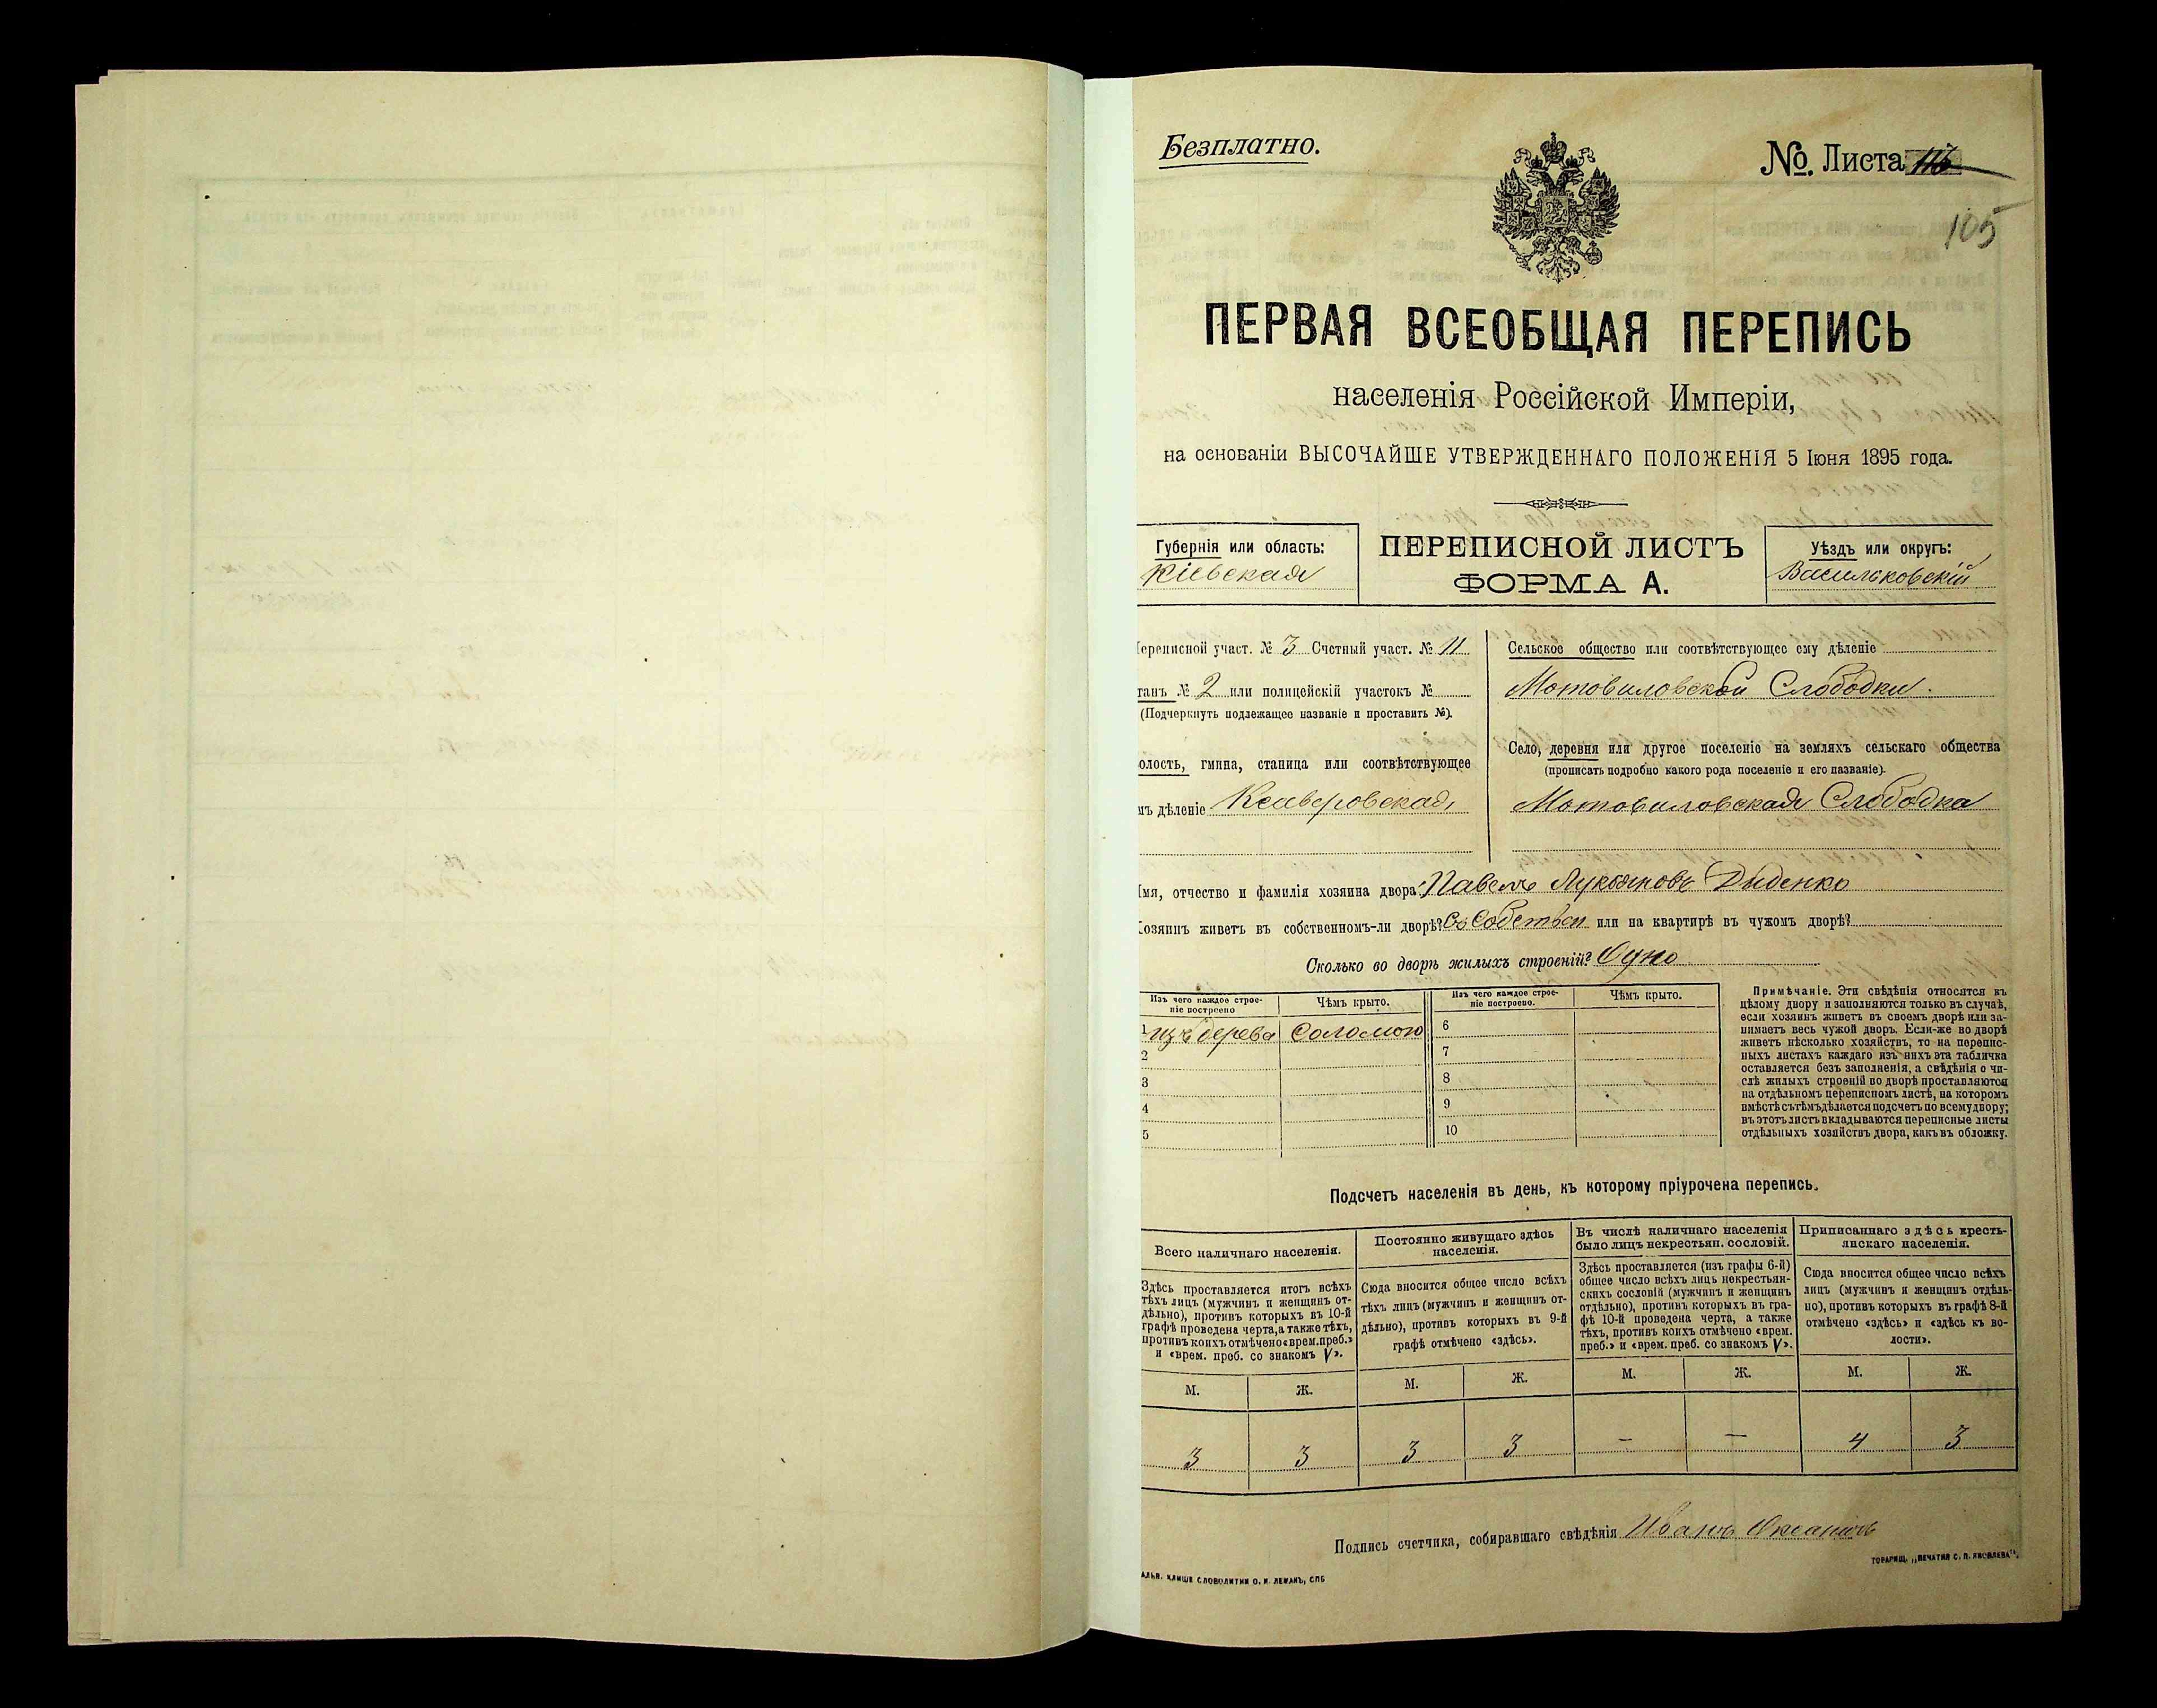 Безплатно.
№. Листа
105
ПЕРВАЯ ВСЕОБЩАЯ ПЕРЕПИСЬ
населенія Россійской Имперіи,
на основаніи ВЫСОЧАЙШЕ УТВЕРЖДЕННАГО ПОЛОЖЕНІЯ 5 Іюня 1895 года.
Губернія или область:
Кіевская
ПЕРЕПИСНОЙ ЛИСТЪ
ФОРМА А.
Уѣздъ или округъ:
Васильковскій
ереписной участ. № 3 Счетный участ. № 11
танъ № 2 или полицейскій участокъ №
(Подчеркнуть подлежащее названіе и проставить №).
олость, гмина, станица или соотвѣтствующее
мъ дѣленіе Ксаверовская
Сельское общество или соотвѣтствующее ему дѣленіе
Мотовиловской Слободки.
Село, деревня или другое поселеніе на земляхъ сельскаго общества
(прописать подробно какого рода поселеніе и его названіе).
Мотовиловская Слободка
Имя, отчество и фамилія хозяина двора: Павелъ Лукьяновъ Диденко
Хозяинъ живетъ въ собственномъ-ли дворѣ? Въ Собствен или на квартирѣ въ чужомъ дворѣ?
Сколько во дворѣ жилыхъ строеній? Одно
Изъ чего каждое строе-
ніе построено
Чѣмъ крыто.
Изъ чего каждое строе-
ніе построено.
Чѣмъ крыто.
1 изъ дерева Соломою 6
2 7
3 8
4 9
5 10
Примѣчаніе. Эти свѣдѣнія относятся къ
цѣлому двору и заполняются только въ случаѣ,
если хозяинъ живетъ въ своемъ дворѣ или за-
нимаетъ весь чужой дворъ. Если-же во дворѣ
живетъ нѣсколько хозяйствъ, то на перепис-
ныхъ листахъ каждаго изъ нихъ эта табличка
оставляется безъ заполненія, а свѣдѣнія о чи-
слѣ жилыхъ строеній во дворѣ проставляются
на отдѣльномъ переписномъ листѣ, на которомъ
вмѣстѣ съ тѣмъ дѣлается подсчетъ по всему двору;
въ этотъ листъ вкладываются переписные листы
отдѣльныхъ хозяйствъ двора, какъ въ обложку.
Подсчетъ населенія въ день, къ которому пріурочена перепись.
Всего наличнаго населенія.
Здѣсь проставляется итогъ всѣхъ
тѣхъ лицъ (мужчинъ и женщинъ от-
дѣльно), противъ которыхъ въ 10-й
графѣ проведена черта, а также тѣхъ,
противъ коихъ отмѣчено «врем. преб.»
и «врем. преб. со знакомъ V».
Постоянно живущаго здѣсь
населенія.
Сюда вносится общее число всѣхъ
тѣхъ лицъ (мужчинъ и женщинъ от-
дѣльно), противъ которыхъ въ 9-й
графѣ отмѣчено «здѣсь».
Въ числѣ наличнаго населенія
было лицъ некрестьян. сословій.
Здѣсь проставляется (изъ графы 6-й)
общее число всѣхъ лицъ некрестьян-
скихъ сословій (мужчинъ и женщинъ
отдѣльно), противъ которыхъ въ гра-
фѣ 10-й проведена черта, а также
тѣхъ, противъ коихъ отмѣчено «врем.
преб.» и «врем. преб. со знакомъ V».
Приписаннаго здѣсь кресть-
янскаго населенія.
Сюда вносится общее число всѣхъ
лицъ (мужчинъ и женщинъ отдѣль-
но), противъ которыхъ въ графѣ 8-й
отмѣчено «здѣсь» и «здѣсь къ во-
лости».
М. Ж. М. Ж. М. Ж. М. Ж.
3 3 3 3 — — 4 3
Подпись счетчика, собиравшаго свѣдѣнія Иванъ
АЛЬВ. КЛИШЕ СЛОВОЛИТНИ О. И. ЛЕМАНЪ, СПБ
ТОВАРИЩ. „ПЕЧАТНЯ С. П. ЯКОВЛЕВА".